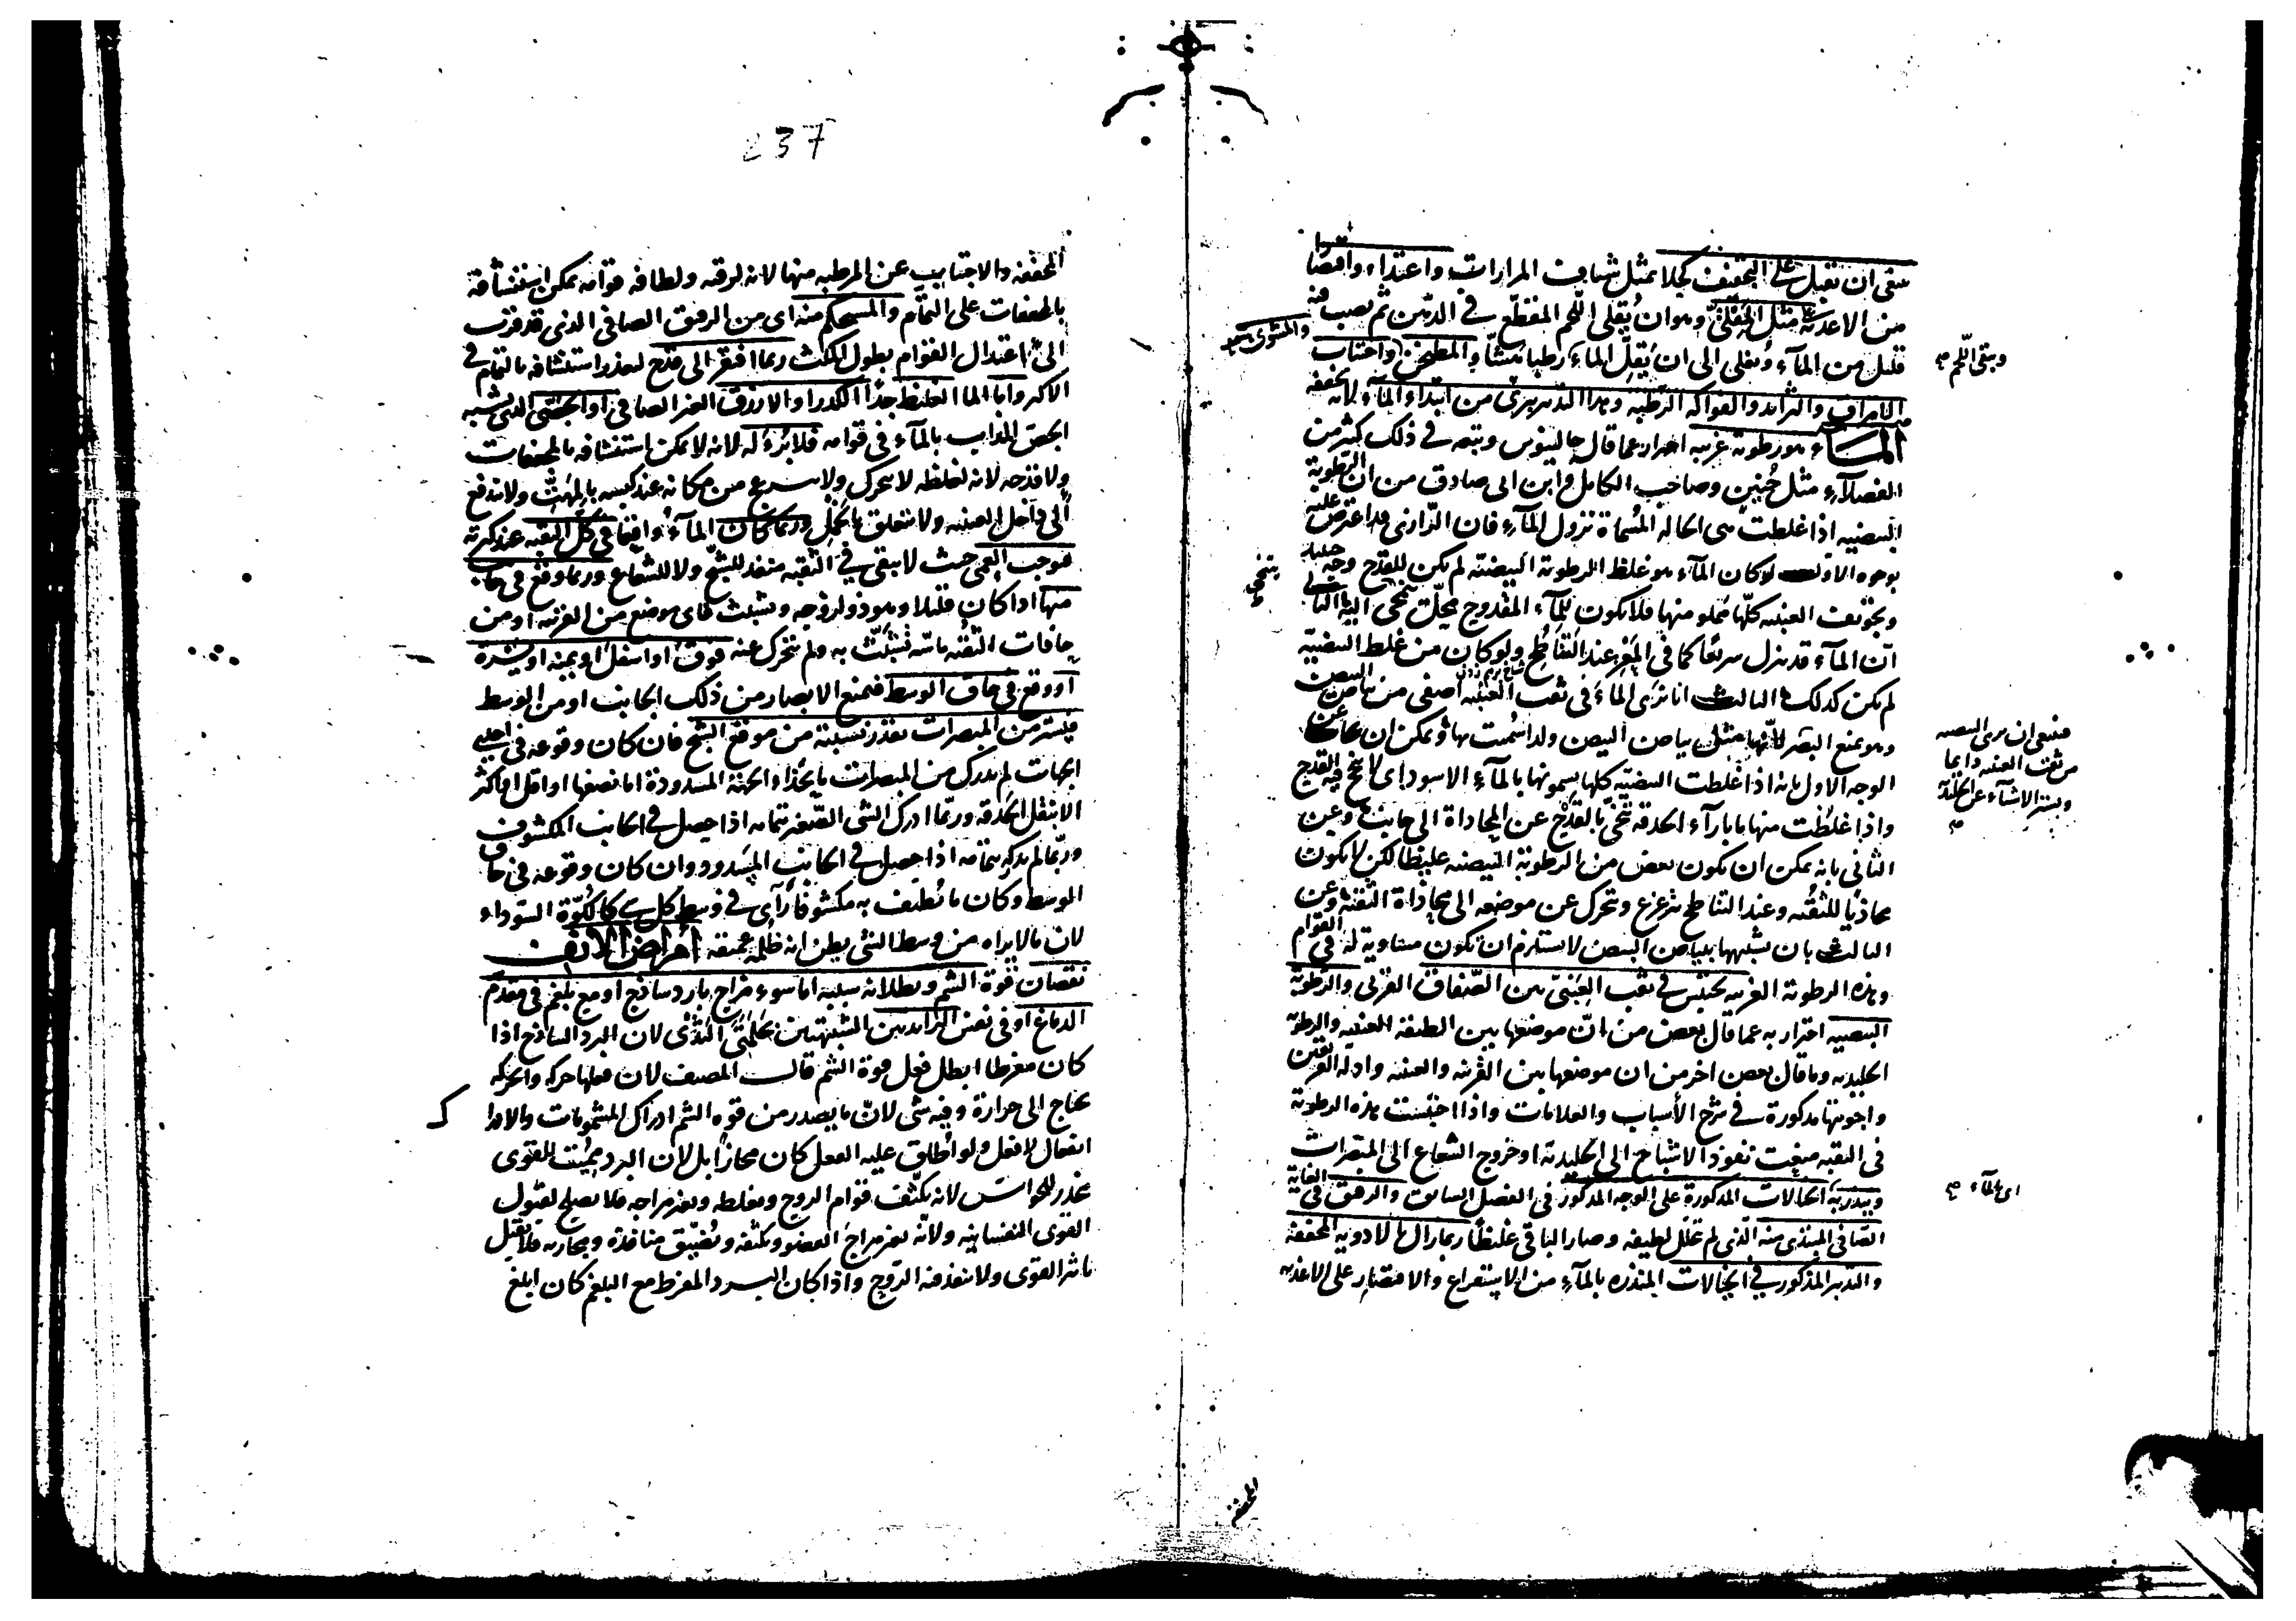 ينبغي ان يقبل على التجفيف كحلا بمثل شياف المرارات واغتذاء واقتصارا
من الاغذية على مثل المقلي وهو ان يقلى اللحم المقطع في الدهن ثم يصب فيه
قليل من الماء ويغلى الى ان يقل الماء رطبا منشّا والمطجن واجتناب
الامراق والثرائد والفواكه الرطبة وهذا التدبير يبرئ من ابتداء الماء لانه يجففه
الماء هو رطوبة غريبة احتراز عما قال جالينوس وتبعه في ذلك كثير من
الفضلاء مثل حنين وصاحب الكامل وابن ابى صادق من ان الرطوبة
البيضية اذا غلظت هي الحالة المسماة نزول الماء فان الرازى قد اعترض عليه
بوجوه الاول لو كان الماء هو غلظ الرطوبة البيضية لم يكن للقدح وجه
وتجويف العنبية كلها مملو منها فلا يكون للماء المقدوح محل يتنحى اليه الثاني
ان الماء قد ينزل سريعا كما في المعز عند التناطح ولو كان من غلظ البيضية
لم يكن كذلك الثالث انا نرى الماء في ثقب العنبية اصفى من بياض البيض
وهو يمنع البصر لانها مثل بياض البيض ولذا سميت بها ويمكن ان يجاب عن
الوجه الاول بانه اذا غلظت البيضية كلها يسمونها بالماء الاسود اى لا ينجح فيه القدح
واذا غلظت منها ما بازاء الحدقة تنحى بالقدح عن المحاذاة الى جانب وعن
الثانى بانه يمكن ان يكون بعض من الرطوبة البيضية غليظا لكن لا يكون
محاذيا للثقبة وعند التناطح يتزعزع ويتحرك عن موضعه الى محاذاة الثقبة وعن
الثالث بان تشبيهها ببياض البيض لا يستلزم ان تكون مساوية له في القوام
وهذه الرطوبة الغريبة تحتبس في ثقب العنبى بين الصفاق القرنى والرطوبة
البيضية احتراز به عما قال بعض من ان موضعها بين الطبقة العنبية والرطوبة
الجليدية وما قال بعض اخر من ان موضعها بين القرنية والعنبية وادلة الفريقين
واجوبتها مذكورة في شرح الاسباب والعلامات واذا احتبست هذه الرطوبة
في الثقبة منعت نفوذ الاشباح الى الجليدية او خروج الشعاع الى المبصرات
وينذر به الخيالات المذكورة على الوجه المذكور في الفصل السابق والرقيق في الغاية
الصافى المبتدى منه الذى لم يتحلل لطيفه وصار الباقى غليظا ربما زال بالادوية المجففة
والتدبير المذكور في الخيالات المنذرة بالماء من الاستفراغ والاقتصار على الاغذية
والمشوى
ويبقى اللحم
يتنحى
فينبغى ان يرى البيضية
من ثقب العنبية دايما
ويستر الاشياء عن الجليدية
اى بالماء
المجففة
237
المجففة والاجتناب عن المرطبة منها لانه لرقته ولطافة قوامه يمكن استنشافه
بالمجففات على التمام والمستحكم منه اى من الرقيق الصافى الذى قد قرب
الى اعتدال القوام بطول المكث ربما افتقر الى قدح لتعذر استنشافه بالتمام في
الاكثر واما الماء الغليظ جدا الكدر او الازرق الغير الصافى او الجصى الذى يشبه
الجص المذاب بالماء في قوامه فلا برء له لانه لا يمكن استنشافه بالمجففات
ولا قدحه لانه لغلظه لا يتحرك ولا يسرع من مكانه عند كبسه بالمهت ولا يندفع
الى داخل العنبية ولا يتعلق بالخمل وربما كان الماء واقفا في كل الثقبة عند كثرته
فيوجب العمى حيث لا يبقى في الثقبة منفذ للشبح ولا للشعاع وربما وقع في جانب
منها اذا كان قليلا وهو ذو لزوجة وتشبث فاى موضع من القرنية او من
حافات الثقبة ماسه تشبث به ولم يتحرك عنه فوق او اسفل او يمنة او يسرة
او وقع في حاق الوسط فيمنع الابصار من ذلك الجانب او من الوسط
فيستر من المبصرات بقدر نسبته من موقع الشبح فان كان وقوعه في احدى
الجهات لم يدرك من المبصرات ما بحذاء الجهة المسدودة اما نصفها او اقل او اكثر
الا بنقل الحدقة وربما ادرك الشى الصغير بتمامه اذا حصل في الجانب المكشوف
وربما لم يدركه بتمامه اذا حصل في الجانب المسدود وان كان وقوعه في حاق
الوسط وكان ما يطيف به مكشوفا رأى في وسط كل شى كالكوة السوداء
لان ما لا يراه من وسط الشى يظن انه ظلمة عميقة امراض الانف
نقصان قوة الشم وبطلانه سببه اما سوء مزاج بارد ساذج او مع بلغم في مقدم
الدماغ او في نفس الزائدتين الشبيهتين بحلمتى الثدى لان البرد الساذج اذا
كان مفرطا ابطل فعل قوة الشم قال المصنف لان فعلها حركة والحركة
تحتاج الى حرارة وفيه شى لان ما يصدر من قوة الشم ادراك المشمومات والادراك
انفعال لا فعل ولو اطلق عليه الفعل كان مجازا بل لان البرد مميت للقوى
مخدر للحواس لانه يكثف قوام الروح ويغلظه ويغير مزاجه فلا يصلح لقبول
القوى النفسانية ولانه يغير مزاج العضو ويكثفه ويضيق منافذه ومجاريه فلا يقبل
تاثير القوى ولا ينفذ فيه الروح واذا كان البرد المفرط مع البلغم كان ابلغ